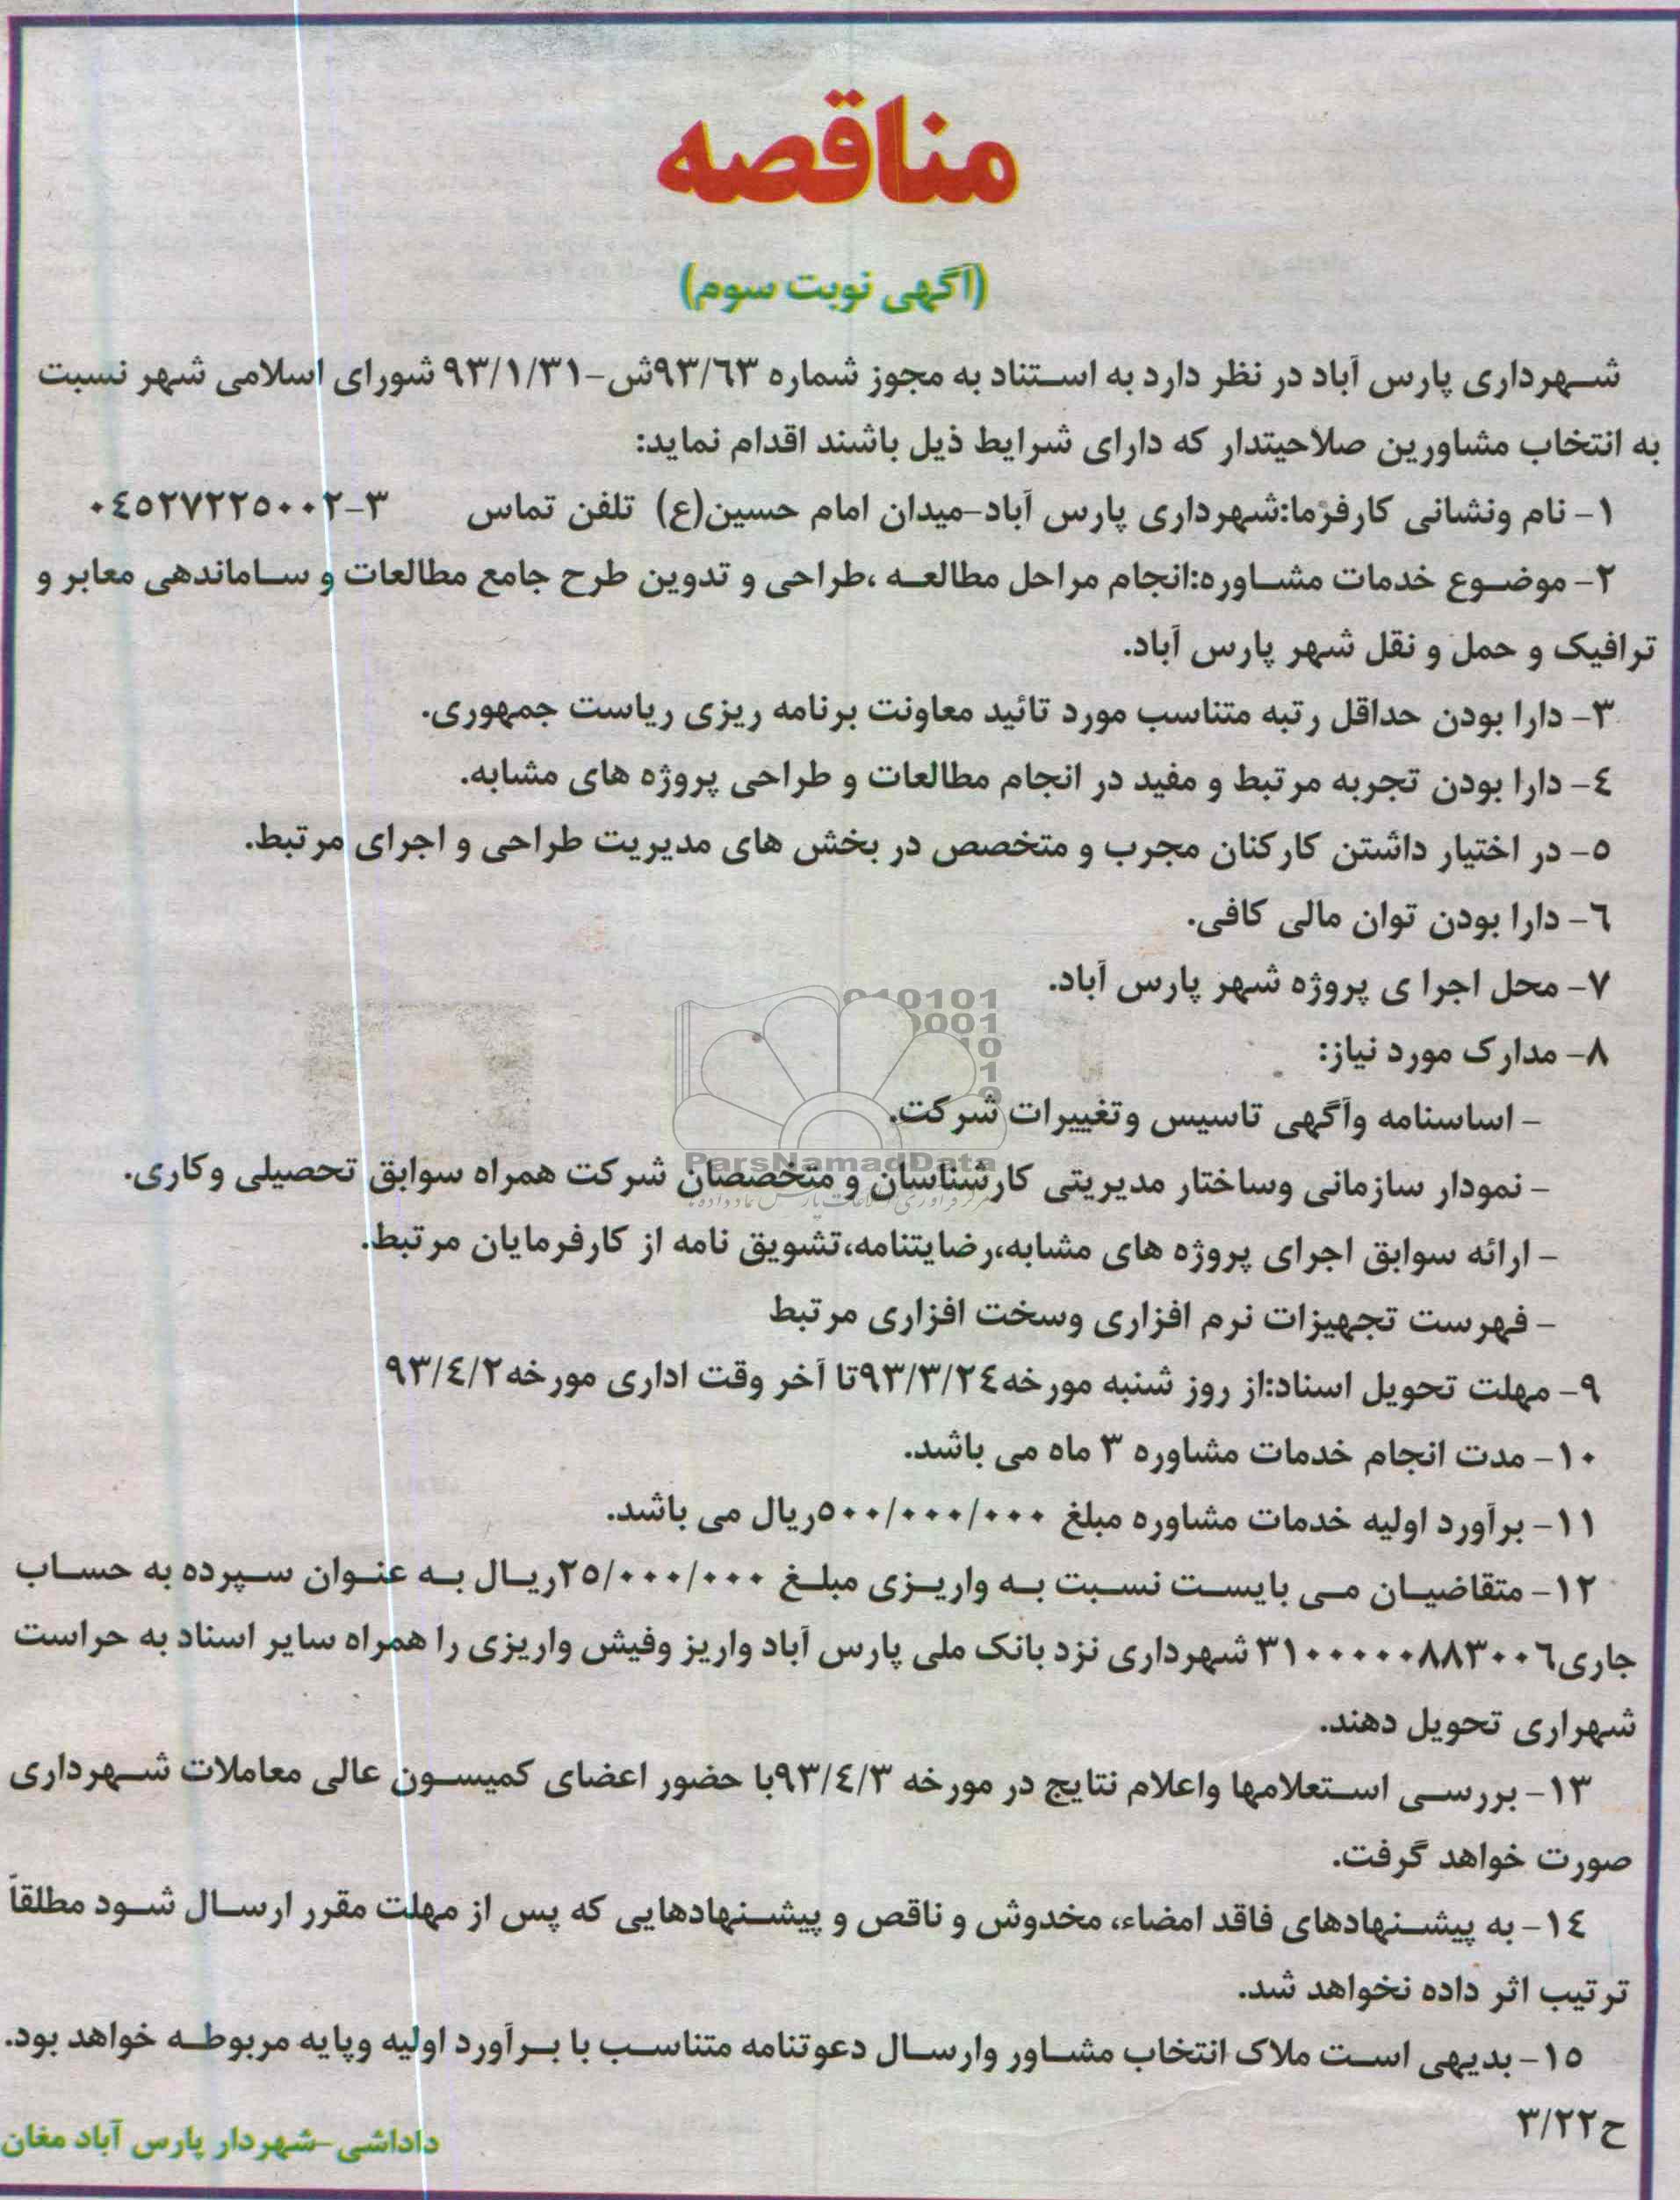 مناقصه
(آگهی نوبت سوم)
شهرداری پارس آباد در نظر دارد به استناد به مجوز شماره ۹۳/۶۳ش-۹۳/۱/۳۱ شورای اسلامی شهر نسبت
به انتخاب مشاورین صلاحیتدار که دارای شرایط ذیل باشند اقدام نماید:
۱- نام ونشانی کارفرما:شهرداری پارس آباد-میدان امام حسین(ع) تلفن تماس ۰۴۵۲۷۲۲۵۰۰۲-۳
۲- موضوع خدمات مشاوره:انجام مراحل مطالعه ،طراحی و تدوین طرح جامع مطالعات و ساماندهی معابر و
ترافیک و حمل و نقل شهر پارس آباد.
۳- دارا بودن حداقل رتبه متناسب مورد تائید معاونت برنامه ریزی ریاست جمهوری.
۴- دارا بودن تجربه مرتبط و مفید در انجام مطالعات و طراحی پروژه های مشابه.
۵- در اختیار داشتن کارکنان مجرب و متخصص در بخش های مدیریت طراحی و اجرای مرتبط.
۶- دارا بودن توان مالی کافی.
۷- محل اجرا ی پروژه شهر پارس آباد.
۸- مدارک مورد نیاز:
- اساسنامه وآگهی تاسیس وتغییرات شرکت.
ParsNamadData
- نمودار سازمانی وساختار مدیریتی کارشناسان و متخصصان شرکت همراه سوابق تحصیلی وکاری.
- ارائه سوابق اجرای پروژه های مشابه،رضایتنامه،تشویق نامه از کارفرمایان مرتبط.
- فهرست تجهیزات نرم افزاری وسخت افزاری مرتبط
۹- مهلت تحویل اسناد:از روز شنبه مورخه۹۳/۳/۲۴تا آخر وقت اداری مورخه۹۳/۴/۲
۱۰- مدت انجام خدمات مشاوره ۳ ماه می باشد.
۱۱- برآورد اولیه خدمات مشاوره مبلغ ۵۰۰/۰۰۰/۰۰۰ریال می باشد.
۱۲- متقاضیان می بایست نسبت به واریزی مبلغ ۲۵/۰۰۰/۰۰۰ریال به عنوان سپرده به حساب
جاری۳۱۰۰۰۰۰۸۸۳۰۰۶ شهرداری نزد بانک ملی پارس آباد واریز وفیش واریزی را همراه سایر اسناد به حراست
شهراری تحویل دهند.
۱۳- بررسی استعلامها واعلام نتایج در مورخه ۹۳/۴/۳با حضور اعضای کمیسون عالی معاملات شهرداری
صورت خواهد گرفت.
۱۴- به پیشنهادهای فاقد امضاء، مخدوش و ناقص و پیشنهادهایی که پس از مهلت مقرر ارسال شود مطلقاً
ترتیب اثر داده نخواهد شد.
۱۵- بدیهی است ملاک انتخاب مشاور وارسال دعوتنامه متناسب با برآورد اولیه وپایه مربوطه خواهد بود.
ح۳/۲۲
داداشی-شهردار پارس آباد مغان